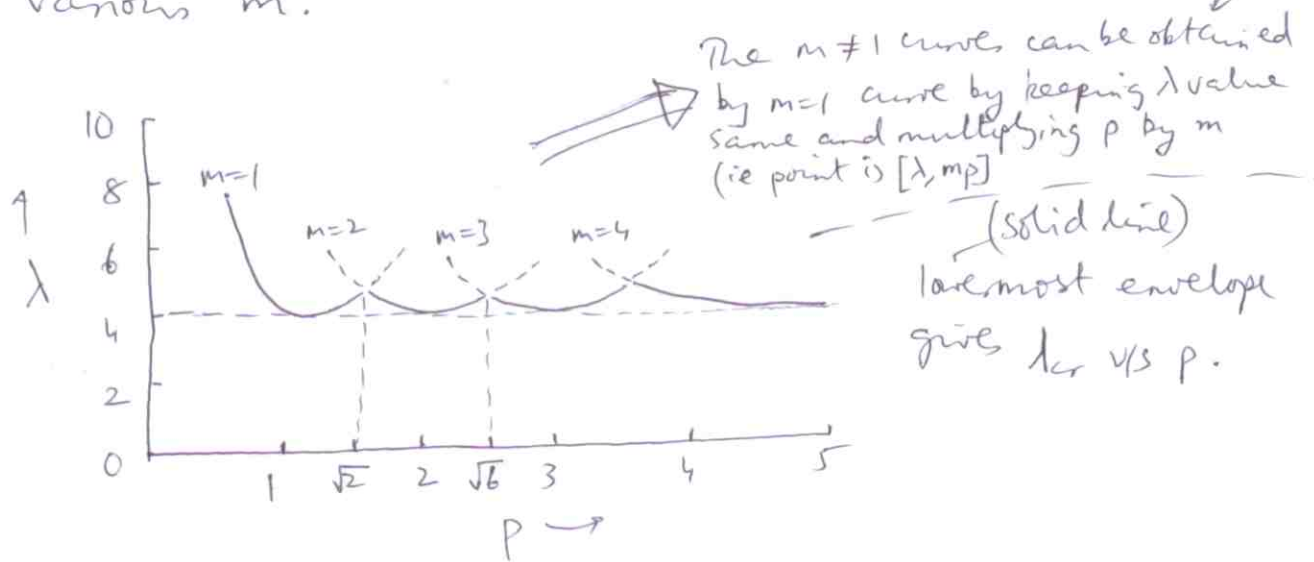 various m.
The m ≠ 1 curves can be obtained
by m=1 curve by keeping λ value
same and multiplying p by m
(ie point is [λ, mp]
(solid line)
lowermost envelope
gives λcr v/s p.
10
8
6
4
2
0
↑
λ
m=1
m=2
m=3
m=4
1 √2 2 √6 3 4 5
p →